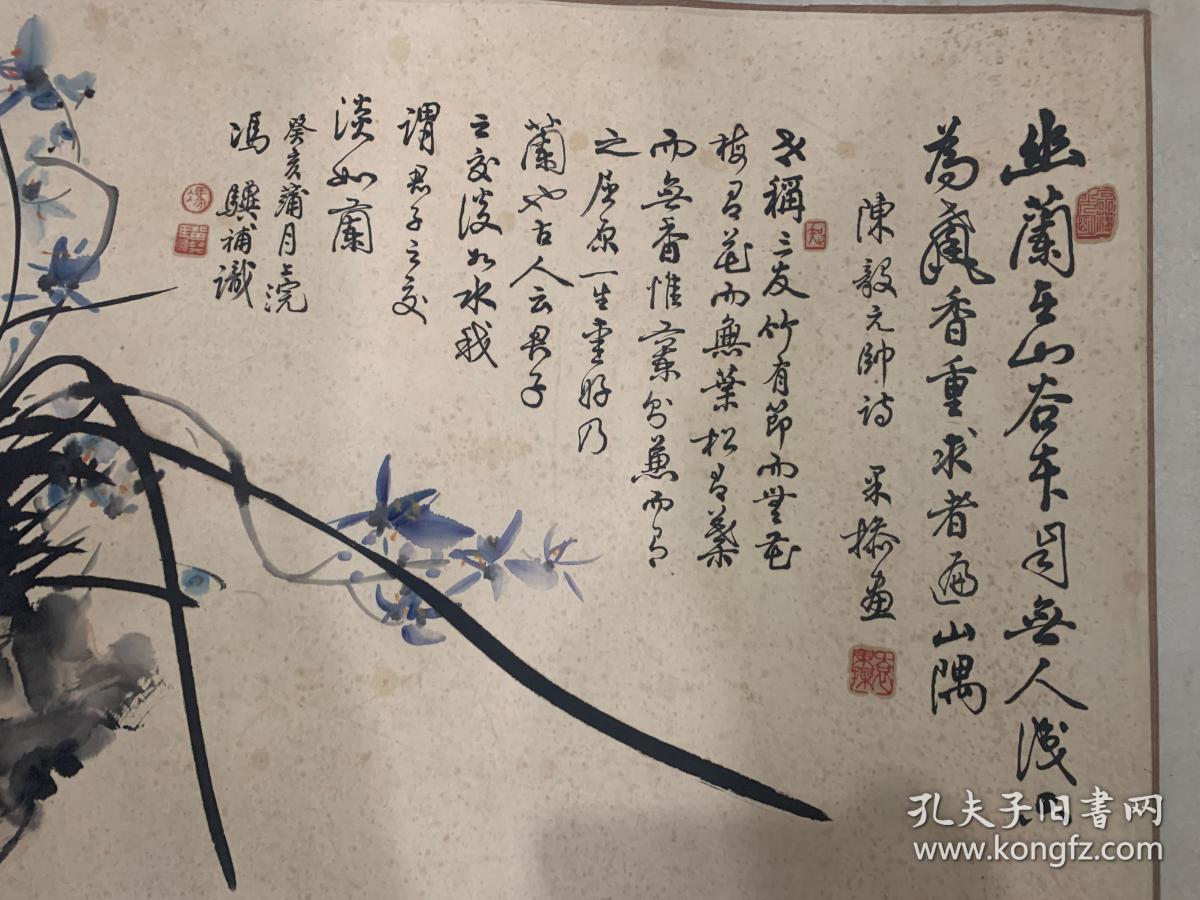 幽蘭在山谷本自無人識只
為馨香重求者遍山隅
陳毅元帥詩 采 画
世稱三友竹有節而無花
梅有花而無葉松有葉
而無香惟蘭獨兼而有
之屈原一生重好乃
蘭也古人云君子
之交淡如水我
謂君子之交
淡如蘭
癸亥蒲月上浣
馮 驥補識
孔夫子旧書网
www.kongfz.com